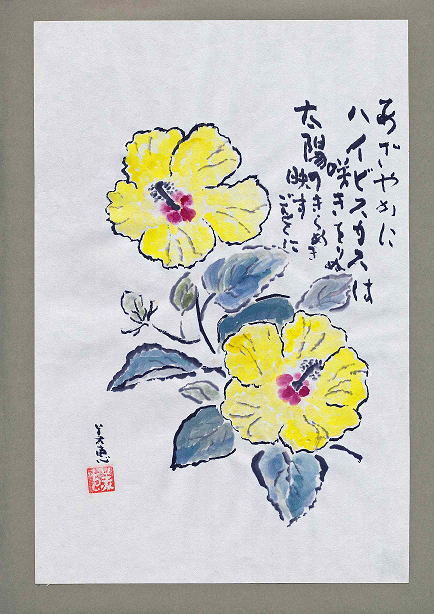 あざやかに
ハイビスカスは
咲きをりぬ
太陽のきらめき
映すごとくに
美恵